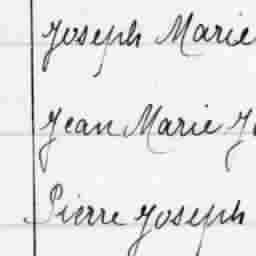 Joseph Marie
Jean Marie Jo
Pierre Joseph